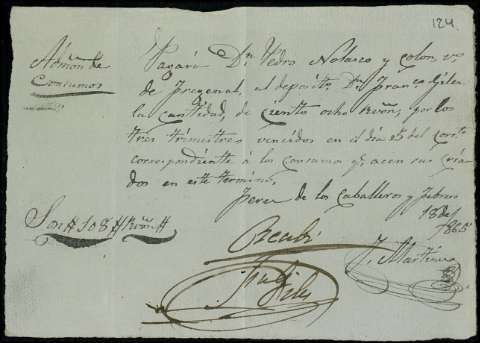 124
Admón de
Consumos
Pagará Dn Pedro Nolasco y colon vº
de Fregenal, al deposito Dn Franco Giles
la cantidad, de ciento ocho Rvón, por los
tres trimestres vencidos en el dia 25 del corte
correspondiente á los consumos qe acen sus cria
dos en este termino,
Jerez de los Caballeros y Febrero
18 de 1865
Son # 108 # Rvón #
Recibí
J. Martinez
Giles